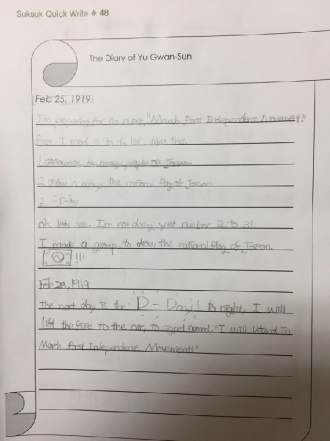 Suksuk Quick Write # 48
The Diary of Yu Gwan-Sun
Feb 25, 1919
I'm preparing for the event "March First Independence Movement!"
First I need a to do list, like the
1. announce to many people of Joseon
2. draw a many the national flag of Joseon
3. D-day
oh, lets see. I'm not doing yet number 2 to 3!
I made a group to draw the national flag of Joseon.
!!!
Feb 28, 1919
The next day is the D-Day! to night, I will
the fire to the to signal "I will
March First Independence Movement!"